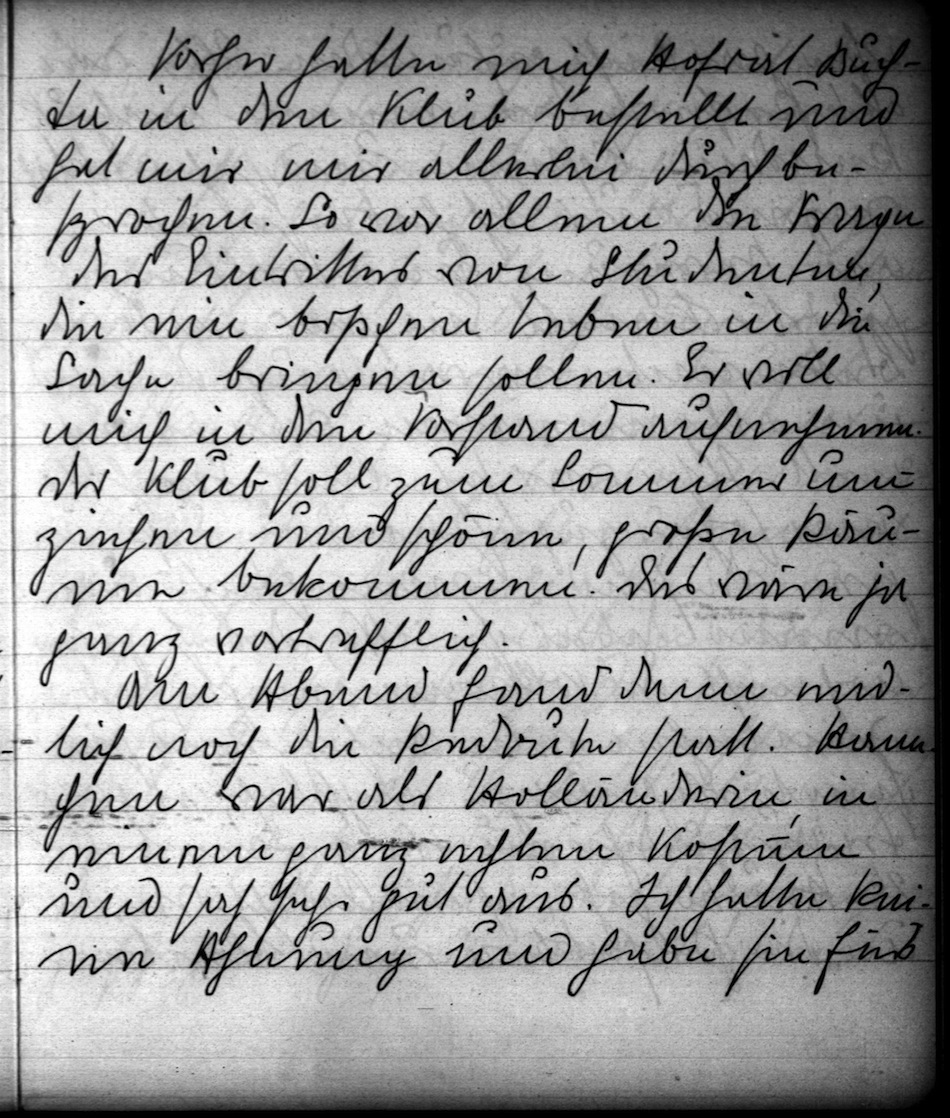 Vorher hatte mich Hofrat Buch-
ta in den Klub bestellt und
hat mir mir allerlei durchbe-
sprochen. So vor allem die Frage
des Eintrittes von Studenten,
die ein bißchen Leben in die
Sache bringen sollen. Er will
mich in den Vorstand aufnehmen.
der Klub soll zum Sommer um-
ziehen und schöne, große Räu-
me bekommen. Das wäre ja
ganz vortrefflich.
Am Abend fand denn end-
lich noch die Redoute statt.
chen war als Holländerin, in
einem ganz echten Kostüm
und sah sehr gut aus. Ich hatte kei-
ne Ahnung und habe sie